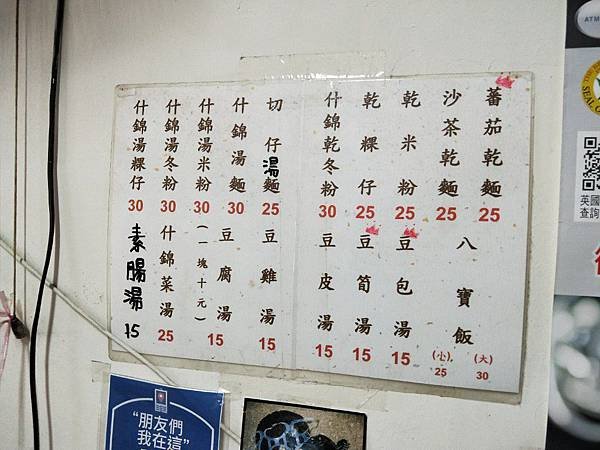 蕃茄乾麵 25
沙茶乾麵 25
乾米粉 25
乾粿仔 25
什錦乾冬粉 30
切仔湯麵 25
什錦湯麵 30
什錦湯米粉 30
什錦湯冬粉 30
什錦湯粿仔 30
八寶飯 (大) 30 (小) 25
豆包湯 15
豆筍湯 15
豆皮湯 15
豆雞湯 15
豆腐湯 (一塊十元) 15
什錦菜湯 25
素腸湯 15
ATM
英國
查詢
"朋友們
我在這"